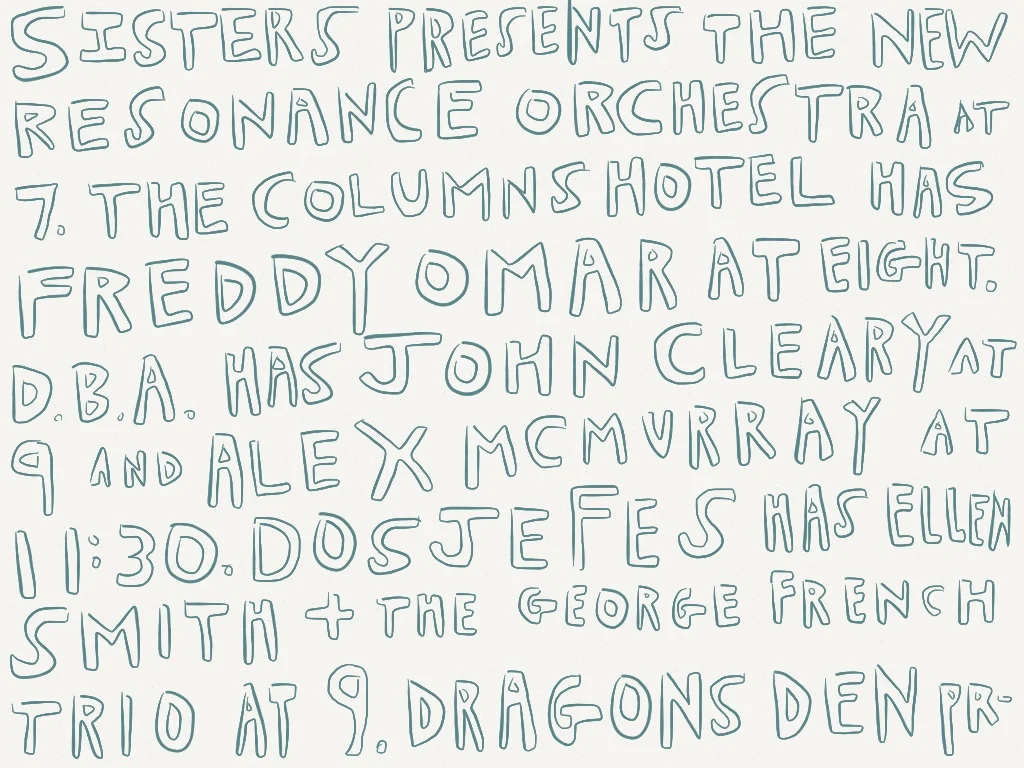 SISTERS PRESENTS THE NEW
RESONANCE ORCHESTRA AT
7. THE COLUMNS HOTEL HAS
FREDDY OMAR AT EIGHT.
D.B.A. HAS JOHN CLEARY AT
9 AND ALEX MCMURRAY AT
11:30. DOS JEFES HAS ELLEN
SMITH + THE GEORGE FRENCH
TRIO AT 9. DRAGONS DEN PR-